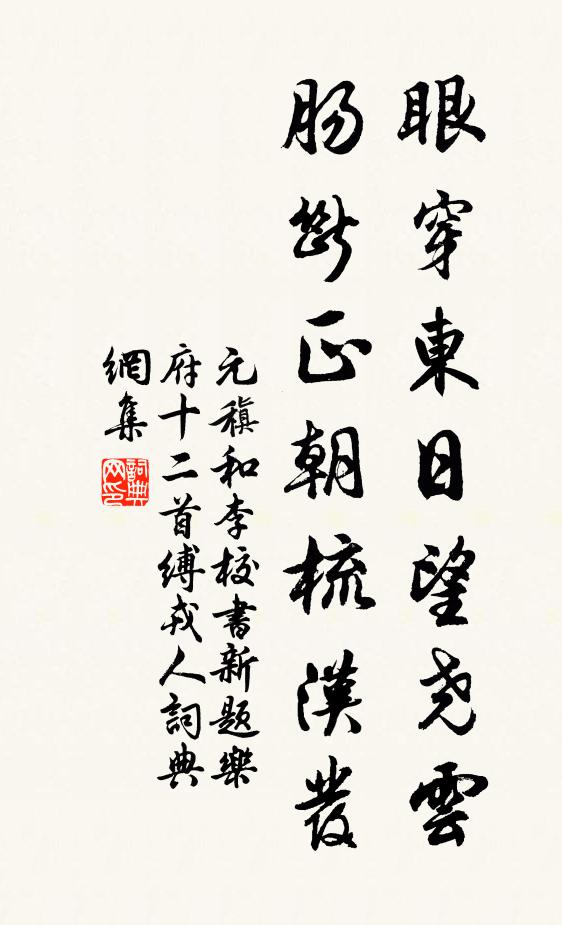 眼穿東日望尧雲
肠斷正朝梳漢發
元稹和李校書新题樂
府十二首縛戎人詞典
網集
詞典
网印